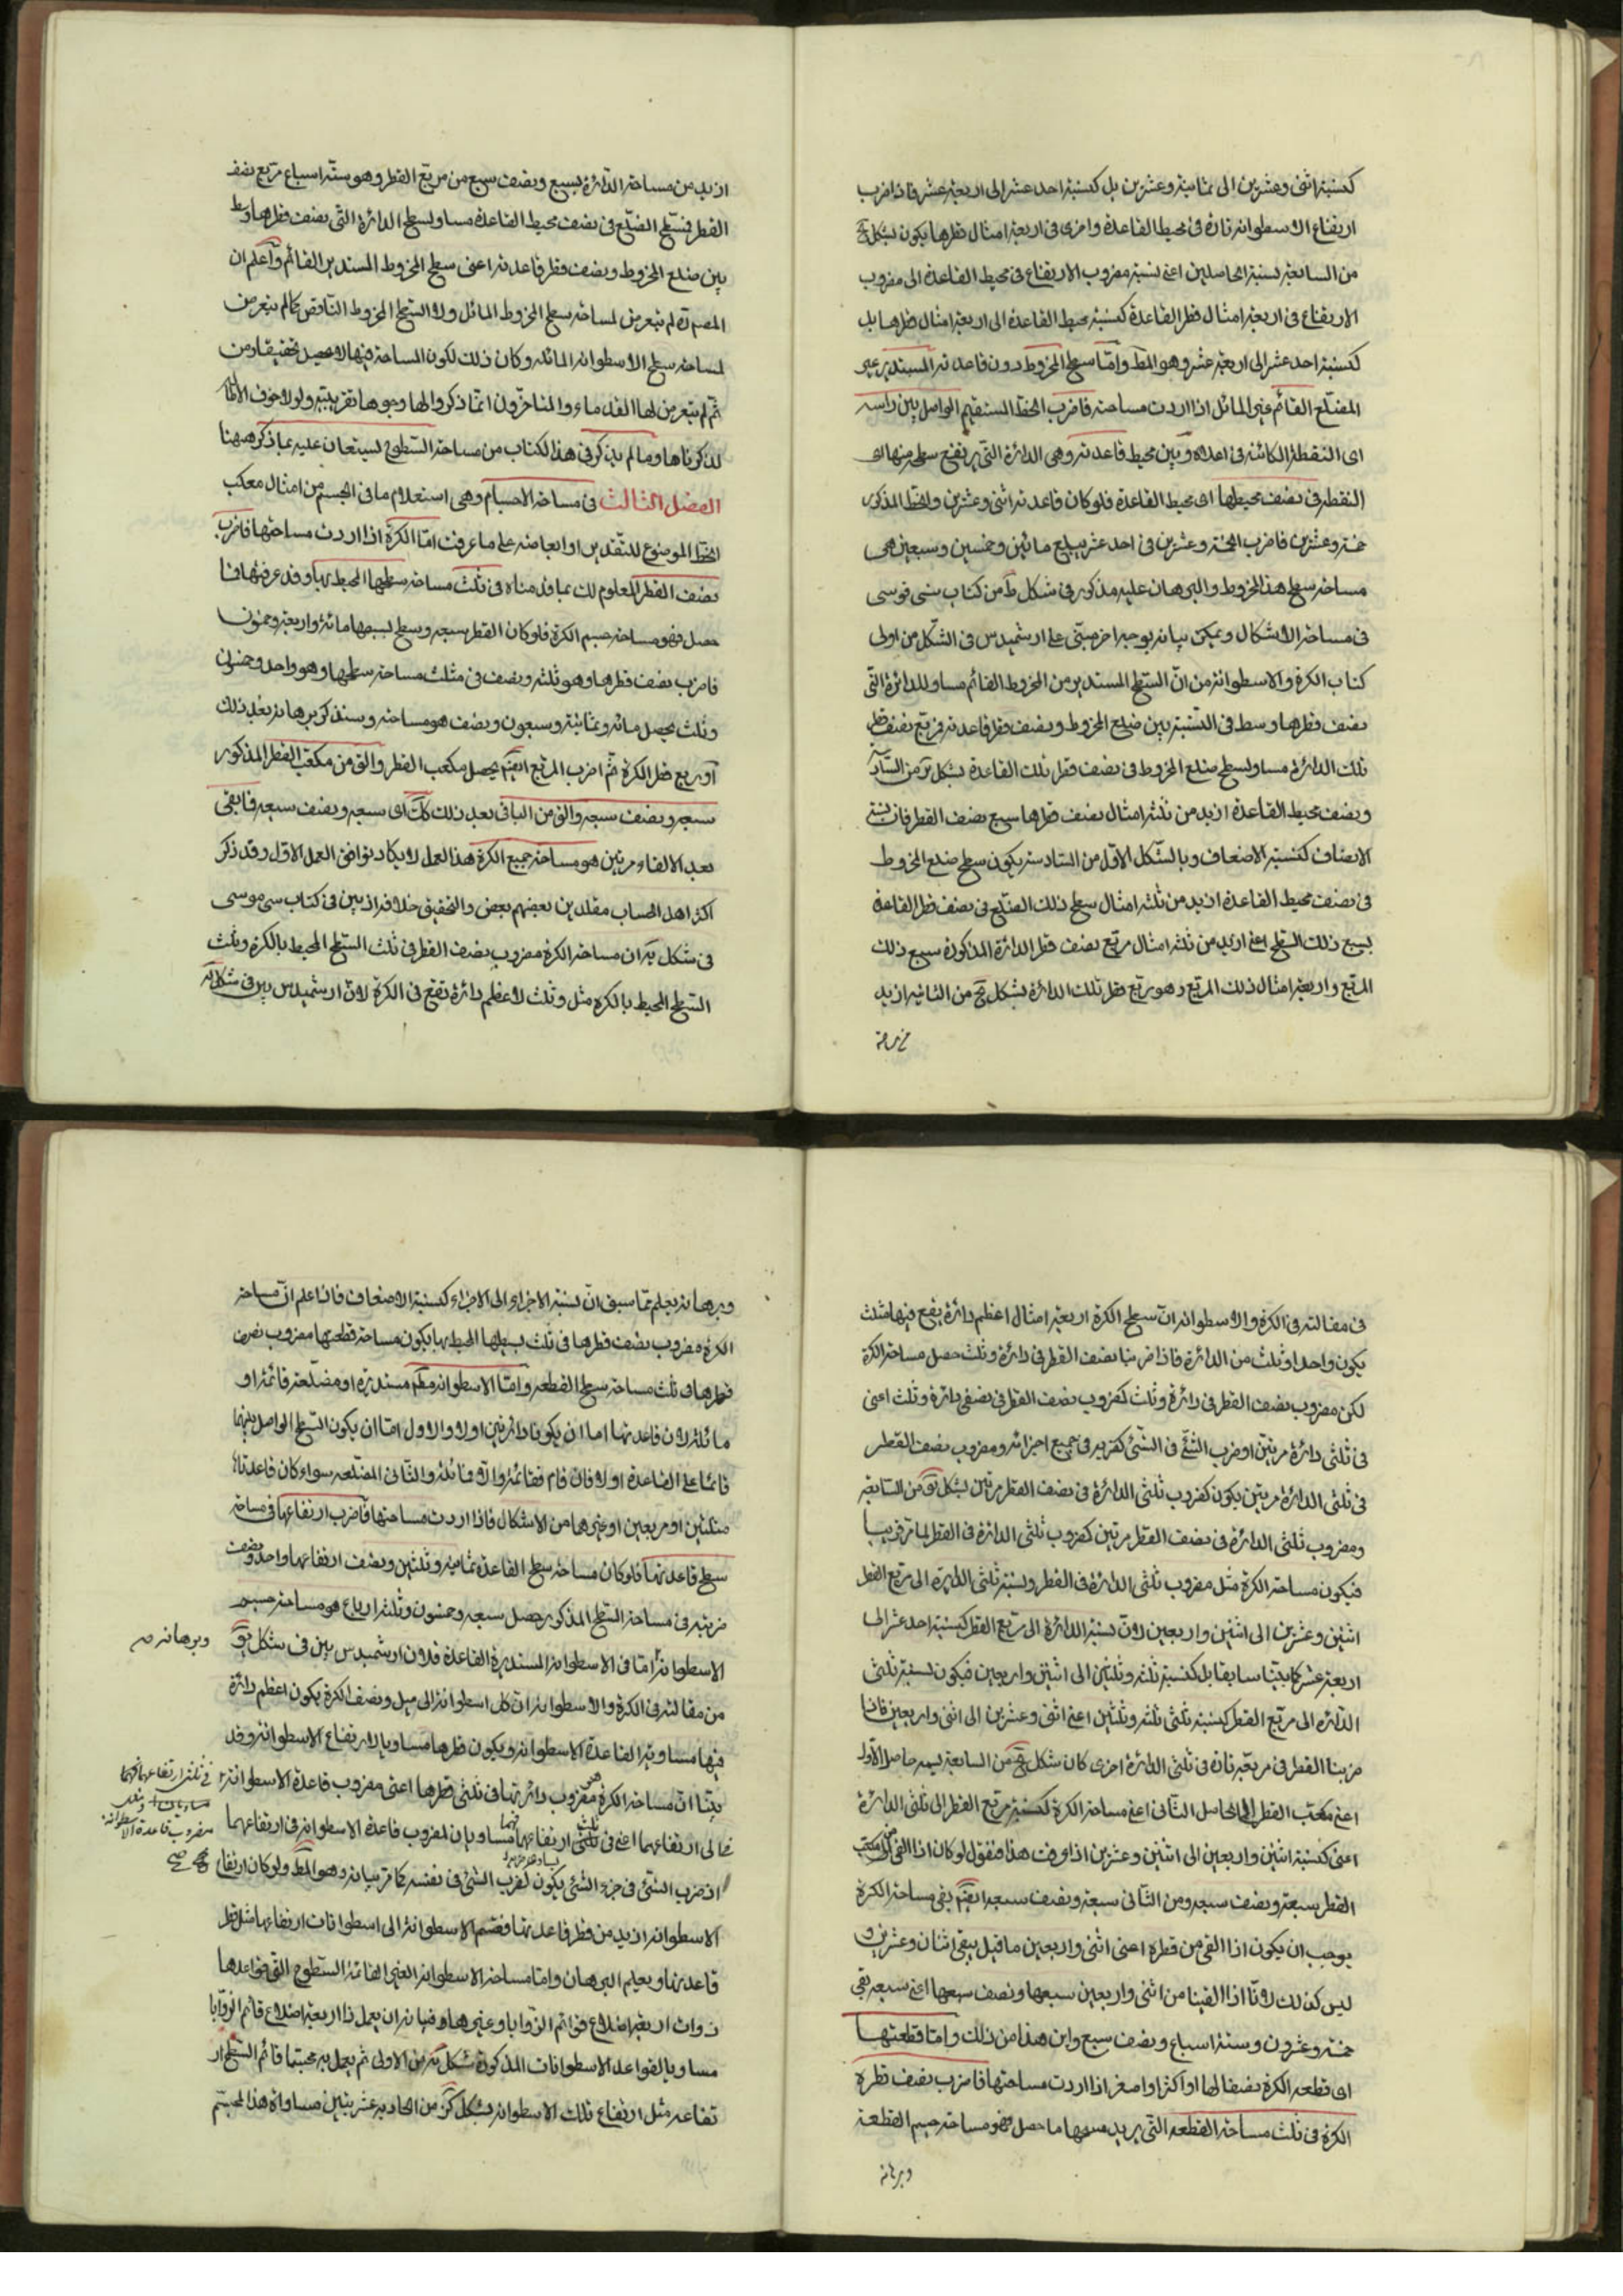 كنسبة اثنى وعشرين الى ثمانية وعشرين بل كنسبة احد عشر الى اربعة عشر فاذا ضرب
ارتفاع الاسطوانة تارة فى محيط القاعدة واخرى فى اربعة امثال قطرها يكون بشكل
من السابعة نسبة الحاصلين اعنى نسبة مضروب الارتفاع فى محيط القاعدة الى مضروب
الارتفاع فى اربعة امثال قطر القاعدة كنسبة محيط القاعدة الى اربعة امثال قطرها بل
كنسبة احد عشر الى اربعة عشر وهو المط وامّا سطح المخروط دون قاعدته المستدير غير
المضلع القائم غير المائل اذا اردت مساحته فاضرب الخط المستقيم الواصل بين راسه
اى النقطة الكائنة فى اعلاه وبين محيط قاعدته وهى الدائرة التى يرتفع سطحه منها الى
النقطة فى نصف محيطها اى محيط القاعدة فلو كان قاعدته اثنى وعشرين والخط المذكور
خمسة وعشرين فاضرب الخمسة وعشرين فى احد عشر يبلغ مائتين وخمسين وسبعين هى
مساحة سطح هذا المخروط والبرهان عليه مذكور فى شكل ط من كتاب بنى موسى
فى مساحة الاشكال ويمكن بيانه بوجه اخر مبتنى على ارشميدس فى الشكل من اولى
كتاب الكرة والاسطوانة من انّ السطح المستدير من المخروط القائم مساو للدائرة التى
نصف قطرها وسط فى النسبة بين ضلع المخروط ونصف قطر قاعدته فمربع نصف قطر
تلك الدائرة مساو لسطح ضلع المخروط فى نصف قطر تلك القاعدة بشكل من السادسة
ونصف محيط القاعدة ازيد من ثلثة امثال نصف قطرها بسبع نصف القطر فان نسبة
الانصاف كنسبة الاضعاف وبالشكل الاول من السادسة يكون سطح ضلع المخروط
فى نصف محيط القاعدة ازيد من ثلثة امثال سطح ذلك الضلع فى نصف قطر القاعدة
بسبع ذلك السطح اعنى ازيد من ثلثة امثال مربع نصف قطر الدائرة المذكورة بسبع ذلك
المربع واربعة امثال ذلك المربع وهو مربع قطر تلك الدائرة بشكل من الثانية ازيد
ازيد من مساحة الدائرة بسبع ونصف سبع من مربع القطر وهو ستة اسباع مربع نصف
القطر فسطح الضلع فى نصف محيط القاعدة مساو لسطح الدائرة التى نصف قطرها وسط
بين ضلع المخروط ونصف قطر قاعدته اعنى سطح المخروط المستدير القائم واعلم ان
المصنف لم يتعرض لمساحة سطح المخروط المائل ولا السطح المخروط الناقص كما لم يتعرض
لمساحة سطح الاسطوانة المائلة وكان ذلك لكون المساحة فيها لا يحصل تحقيقا ومن
ثم لم يتعرض لها القدماء والمتاخرون انما ذكروا لها وجوها تقريبية ولولا خوف الاطالة
لذكرناها وما لم يذكر فى هذا الكتاب من مساحة السطوح ليستعان عليه بما ذكر ههنا
الفصل الثالث فى مساحة الاجسام وهى استعلام ما فى الجسم من امثال مكعب
الخط الموضوع للتقدير او ابعاضه على ما عرفت امّا الكرة اذا اردت مساحتها فاضرب
نصف القطر المعلوم لك بما قدمناه فى ثلث مساحة سطحها المحيط بها وقد عرفتها فما
حصل فهو مساحة جسم الكرة فلو كان القطر سبعة وسطح بسيطها مائة واربعة وخمسون
فاضرب نصف قطرها وهو ثلثة ونصف فى مثلث مساحة سطحها وهو واحد وخمسون
وثلث يحصل مائة وثمانية وسبعون ونصف هو مساحته وسنذكر برهانه بعد ذلك
او ربع قطر الكرة ثم اضرب المربع ايضا يحصل مكعب القطر والق من مكعب القطر المذكور
سبعه ونصف سبعه والق من الباقى بعد ذلك كك اى سبعه ونصف سبعه فما بقى
بعد الالقاء مرتين هو مساحة جميع الكرة هذا العمل لا يكاد يوافق العمل الاول وقد ذكر
اكثر اهل الحساب مقلدين بعضهم بعض والتحقيق خلافه اذ بين فى كتاب بنى موسى
فى شكل يه ان مساحة الكرة مضروب نصف القطر فى ثلث السطح المحيط بالكرة وثلث
السطح المحيط بالكرة مثل وثلث لاعظم دائرة تقع فى الكرة لان ارشميدس بين فى شكل
فى مقالته فى الكرة والاسطوانة انّ سطح الكرة اربعة امثال اعظم دائرة يقع فيها فثلث
يكون واحدا وثلث من الدائرة فاذا ضربنا نصف القطر فى دائرة وثلث حصل مساحة الكرة
لكن مضروب نصف القطر فى دائرة وثلث كمضروب نصف القطر فى نصفى دائرة وثلث اعنى
فى ثلثى دائرة مرتين او ضرب الشئ فى الشئ كضربه فى جميع اجزائه ومضروب نصف القطر
فى ثلثى الدائرة مرتين يكون كضروب ثلثى الدائرة فى نصف القطر مرتين بشكل من السابعة
ومضروب ثلثى الدائرة فى نصف القطر مرتين كمضروب ثلثى الدائرة فى القطر لما مر قريبا
فيكون مساحة الكرة مثل مضروب ثلثى الدائرة فى القطر ونسبة ثلثى الدائرة الى مربع القطر
اثنين وعشرين الى اثنين واربعين لانّ نسبة الدائرة الى مربع القطر كنسبة احد عشر الى
اربعة عشر كما بيّنا سابقا بل كنسبة ثلثة وثلثين الى اثنين واربعين فيكون نسبة ثلثى
الدائرة الى مربع القطر كنسبة ثلثى ثلثة وثلثين اعنى اثنى وعشرين الى اثنى واربعين فاذا
ضربنا القطر فى مربعه تارة فى ثلثى الدائرة اخرى كان بشكل من السابعة نسبة حاصل الاول
اعنى مكعب القطر الى الحاصل الثانى اعنى مساحة الكرة كنسبة مربع القطر الى ثلثى الدائرة
اعنى كنسبة اثنين واربعين الى اثنين وعشرين اذا عرفت هذا فنقول لو كان اذا القى من مكعب
القطر سبعه ونصف سبعه ومن الثانى سبعه ونصف سبعه ايضا بقى مساحة الكرة
يوجب ان يكون اذا القى من قطره اعنى اثنى واربعين ما قيل يبقى اثنان وعشرون و
ليس كذلك لانّا اذا القينا من اثنى واربعين سبعها ونصف سبعها اعنى سبعه بقى
خمسة وعشرون وستة اسباع ونصف سبع واين هذا من ذلك وامّا قطعتها
اى قطعة الكرة نصفا لها او اكثر او اصغر اذا اردت مساحتها فاضرب نصف قطره
الكرة فى ثلث مساحة القطعة التى يريد مسحها ما حصل فهو مساحة جسم القطعة
وبرهانه
وبرهانه يعلم مما سبق انّ نسبة الاجزاء الى الاجزاء كنسبة الاضعاف فاذا علم انّ مساحة
الكرة مضروب نصف قطرها فى ثلث بسيطها المحيط بها يكون مساحة قطعتها مضروب نصف
قطرها فى ثلث مساحة سطح القطعة وامّا الاسطوانة مط مستديرة او مضلعة قائمة او
مائلة لان قاعدتها اما ان يكونا دائرتين اولا والاول امّا ان يكون السطح الواصل بينهما
قائما على القاعدة اولا فان قام فقائمة والا فمائلة والثانى المضلعه سواء كان قاعدتاه
مثلثين او مربعين او غيرها من الاشكال فاذا اردت مساحتها فاضرب ارتفاعها فى مساحة
سطح قاعدتها فلو كان مساحة سطح القاعدة ثمانية وثلثين ونصف ارتفاعها واحد ونصف
ضربته فى مساحة السطح المذكور حصل سبعه وخمسون وثلثة ارباع هو مساحة جسم
الاسطوانة امّا فى الاسطوانة المستديرة القاعدة فلان ارشميدس بين فى شكل
من مقالته فى الكرة والاسطوانة ان كل اسطوانة الى مثل ونصف الكرة يكون اعظم دائرة
فيها مساوية القاعدة الاسطوانة ويكون قطرها مساويا لارتفاع الاسطوانة وقد
بيّنا انّ مساحة الكرة هى مضروب دائرتها فى ثلثى قطرها اعنى مضروب قاعدة الاسطوانة
فى ارتفاعهما اعنى فى ثلثى ارتفاعها فهما مساويان لمضروب قاعدة الاسطوانة فى ارتفاعهما
اذ ضرب الشئ فى جزء الشئ يكون كضرب الشئ فى نفسه كما مر بيانه وهو المط ولو كان ارتفاع
الاسطوانة ازيد من قطر قاعدتها فقسم الاسطوانة الى اسطوانات ارتفاعها مثل قطر
قاعدتها ويعلم البرهان وامّا مساحة الاسطوانة الغير القائمة السطوح التى قواعدها
ذوات اربعة اضلاع قوائم الزوايا وغيرها فبيانه ان يعمل ذا اربعة اضلاع قائم الزوايا
مساو بالقواعد الاسطوانات المذكورة بشكل من الاولى ثم يعمل به مجسما قائم السطح
تفاعه مثل ارتفاع تلك الاسطوانة بشكل من الحادية عشر يتبين مساواة هذا المجسم
وبرهانه